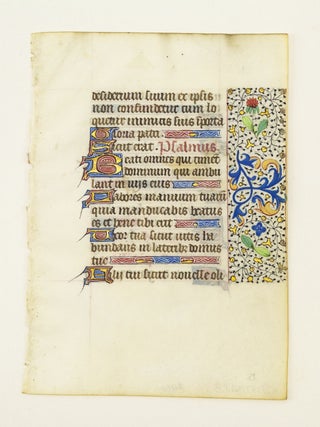 desiderium suum ex ipsis
non confundetur cum lo
quetur inimicis suis i porta
Gloria patri.
Sicut erat. Psalmus
Beati omnes qui timent
dominum qui ambu
lant in viis eius
Labores manuum tuarū
quia manducabis beatus
es et bene tibi erit
Uxor tua sicut vitis ha
bundans in lateribz domus
tue
Filii tui sicut novelle oli